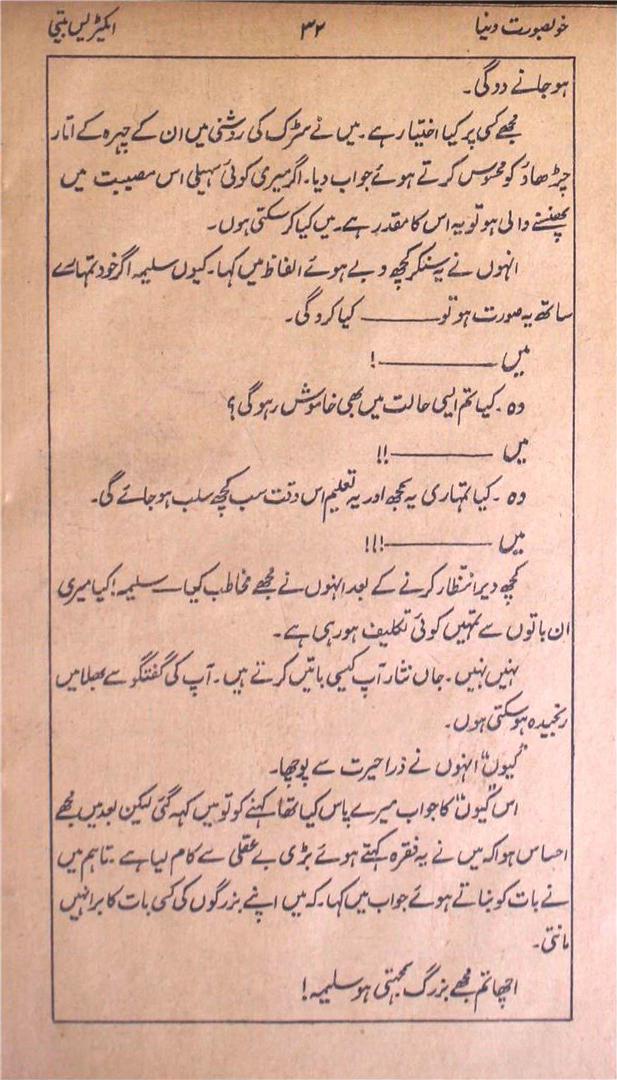 خوبصورت دنیا ۳۲ ایکٹریس بیتی
ہوجانے دوگی۔
مجھے کسی پر کیا اختیار ہے۔ میں نے سڑک کی روشنی میں ان کے چہرہ کے اتار
چڑھاؤ کو محسوس کرتے ہوئے جواب دیا۔ اگر میری کوئی سہیلی اس مصیبت میں
پھنسنے والی ہو تو یہ اس کا مقدر ہے۔ میں کیا کرسکتی ہوں۔
انہوں نے یہ سنکر کچھ دبے ہوئے الفاظ میں کہا۔ کیوں سلیمہ اگر خود تمہارے
ساتھ یہ صورت ہو تو ـــــــ کیا کروگی۔
میں ـــــــــــ !
وہ۔ کیا تم ایسی حالت میں بھی خاموش رہوگی؟
میں ـــــــــــ !!
وہ۔ کیا تمہاری یہ سمجھ اور یہ تعلیم اس وقت سب کچھ سلب ہوجائے گی۔
میں ـــــــــــ !!!
کچھ دیر انتظار کرنے کے بعد انہوں نے مجھے مخاطب کیا ـــ سلیمہ! کیا میری
ان باتوں سے تمہیں کوئی تکلیف ہورہی ہے۔
نہیں نہیں۔ جاں نثار آپ کیسی باتیں کرتے ہیں۔ آپ کی گفتگو سے بھلا میں
رنجیدہ ہوسکتی ہوں۔
"کیوں" انہوں نے ذرا حیرت سے پوچھا۔
اس "کیوں" کا جواب میرے پاس کیا تھا کہنے کو تو میں کہہ گئی لیکن بعد میں مجھے
احساس ہوا کہ میں نے یہ فقرہ کہتے ہوئے بڑی بے عقلی سے کام لیا ہے۔ تاہم میں
نے بات کو بناتے ہوئے جواب میں کہا۔ کہ میں اپنے بزرگوں کی کسی بات کا برا نہیں
مانتی۔
اچھا تم مجھے بزرگ سمجھتی ہو سلیمہ!